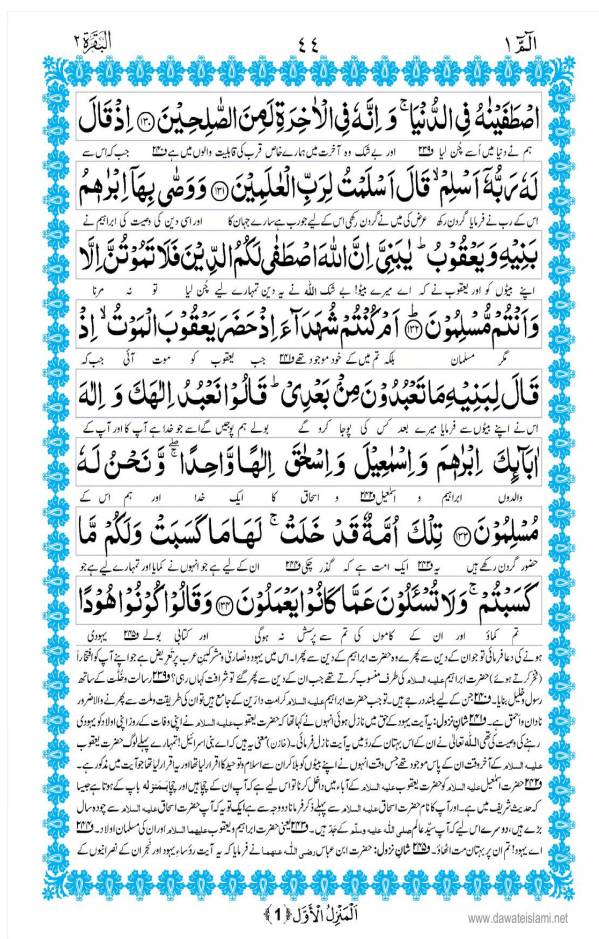 الٓمّٓ ١
٤٤
البقرة ٢
اصْطَفَيْنٰهُ فِي الدُّنْيَا ۚ وَ اِنَّهٗ فِي الْاٰخِرَةِ لَمِنَ الصّٰلِحِيْنَ ﴿١٣٠﴾ اِذْ قَالَ
ہم نے دنیا میں اُسے چُن لیا ف۲۳۹ اور بے شک وہ آخرت میں ہمارے خاص قرب کی قابلیت والوں میں ہے ف۲۴۰ جب کہ اس سے
لَهٗ رَبُّهٗٓ اَسْلِمْ ۙ قَالَ اَسْلَمْتُ لِرَبِّ الْعٰلَمِيْنَ ﴿١٣١﴾ وَ وَصّٰى بِهَآ اِبْرٰهٖمُ
اس کے رب نے فرمایا گردن رکھ عرض کی میں نے گردن رکھی اس کے لیے جو رب ہے سارے جہان کا اور اسی دین کی وصیت کی ابراہیم نے
بَنِيْهِ وَ يَعْقُوْبُ ؕ يٰبَنِيَّ اِنَّ اللّٰهَ اصْطَفٰى لَكُمُ الدِّيْنَ فَلَا تَمُوْتُنَّ اِلَّا
اپنے بیٹوں کو اور یعقوب نے کہ اے میرے بیٹو! بے شک اللہ نے یہ دین تمہارے لیے چُن لیا تو نہ مرنا
وَ اَنْتُمْ مُّسْلِمُوْنَ ﴿١٣٢﴾ اَمْ كُنْتُمْ شُهَدَآءَ اِذْ حَضَرَ يَعْقُوْبَ الْمَوْتُ ۙ اِذْ
مگر مسلمان بلکہ تم میں کے خود موجود تھے ف۲۴۱ جب یعقوب کو موت آئی جب کہ
قَالَ لِبَنِيْهِ مَا تَعْبُدُوْنَ مِنْۢ بَعْدِيْ ؕ قَالُوْا نَعْبُدُ اِلٰهَكَ وَ اِلٰهَ
اس نے اپنے بیٹوں سے فرمایا میرے بعد کس کی پوجا کرو گے بولے ہم پوجیں گے اسے جو خدا ہے آپ کا اور آپ کے
اٰبَآىِٕكَ اِبْرٰهٖمَ وَ اِسْمٰعِيْلَ وَ اِسْحٰقَ اِلٰهًا وَّاحِدًا ۖۚ وَّ نَحْنُ لَهٗ
والدوں ابراہیم و اسمٰعیل ف۲۴۲ و اسحاق کا ایک خدا اور ہم اس کے
مُسْلِمُوْنَ ﴿١٣٣﴾ تِلْكَ اُمَّةٌ قَدْ خَلَتْ ۚ لَهَا مَا كَسَبَتْ وَ لَكُمْ مَّا
حضور گردن رکھے ہیں یہ ف۲۴۳ ایک امت ہے کہ گذر چکی ف۲۴۴ ان کے لیے ہے جو انہوں نے کمایا اور تمہارے لیے ہے جو
كَسَبْتُمْ ۚ وَ لَا تُسْـَٔلُوْنَ عَمَّا كَانُوْا يَعْمَلُوْنَ ﴿١٣٤﴾ وَ قَالُوْا كُوْنُوْا هُوْدًا
تم کماؤ اور ان کے کاموں کی تم سے پرسش نہ ہوگی اور کتابی بولے ف۲۴۵ یہودی
ہونے کی دعا فرمائی تو جو ان کے دین سے پھرے وہ حضرت ابراہیم کے دین سے پھرا۔ اس میں یہود و نصاریٰ و مشرکین عرب پر تعریض ہے جو اپنے آپ کو افتخاراً
(فخر کرتے ہوئے) حضرت ابراہیم علیہ السلام کی طرف منسوب کرتے تھے جب ان کے دین سے پھر گئے تو شرافت کہاں رہی؟ ف۲۳۹ رسالت و خُلّت کے ساتھ
رسول و خلیل بنایا۔ ف۲۴۰ جن کے لیے بلند درجے ہیں۔ تو جب حضرت ابراہیم علیہ السلام کرامتِ دارین کے جامع ہیں تو ان کی طریقت و ملت سے پھرنے والا ضرور
نادان و احمق ہے۔ ف۲۴۱ شانِ نزول: یہ آیت یہود کے حق میں نازل ہوئی انہوں نے کہا تھا کہ حضرت یعقوب علیہ السلام نے اپنی وفات کے روز اپنی اولاد کو یہودی
رہنے کی وصیت کی تھی اللہ تعالیٰ نے ان کے اس بہتان کے رد میں یہ آیت نازل فرمائی۔ (خازن) معنی یہ ہیں کہ اے بنی اسرائیل! تمہارے پہلے لوگ حضرت یعقوب
علیہ السلام کے آخر وقت ان کے پاس موجود تھے جس وقت انہوں نے اپنے بیٹوں کو بلا کر ان سے اسلام و توحید کا اقرار لیا تھا اور یہ اقرار لیا تھا جو آیت میں مذکور ہے۔
ف۲۴۲ حضرت اسمٰعیل علیہ السلام کو حضرت یعقوب علیہ السلام کے آباء میں داخل کرنا تو اس لیے ہے کہ آپ ان کے چچا ہیں اور چچا بمنزلہ باپ کے ہوتا ہے جیسا
کہ حدیث شریف میں ہے۔ اور آپ کا نام حضرت اسحاق علیہ السلام سے پہلے ذکر فرمانا دو وجہ سے ہے ایک تو یہ کہ آپ حضرت اسحاق علیہ السلام سے چودہ سال
بڑے ہیں، دوسرے اس لیے کہ آپ سیّدِ عالم صلی اللہ علیہ وسلم کے جد ہیں۔ ف۲۴۳ یعنی حضرت ابراہیم و یعقوب علیہما السلام اور ان کی مسلمان اولاد۔ ف۲۴۴
اے یہود! تم ان پر بہتان مت اٹھاؤ۔ ف۲۴۵ شانِ نزول: حضرت ابن عباس رضی اللہ عنہما نے فرمایا کہ یہ آیت رؤساءِ یہود اور نجران کے نصرانیوں کے
اَلْمَنْزِلُ الْاَوَّل ﴿1﴾
www.dawateislami.net